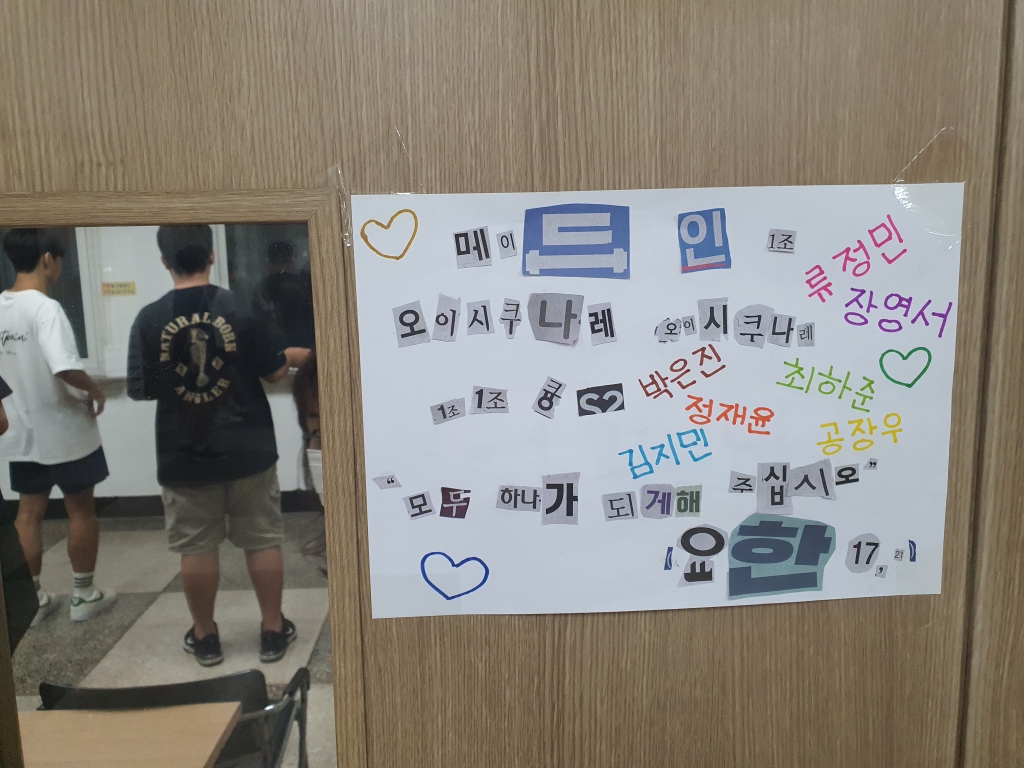 메이드 인 1조
류정민
장영서
오이시쿠나레 오이시쿠나레
박은진
최하준
1조 1조 큥
정재윤
공장우
김지민
“모두 하나가 되게해 주십시오”
(요한 17, 21)
NATURAL BORN
ANGLER